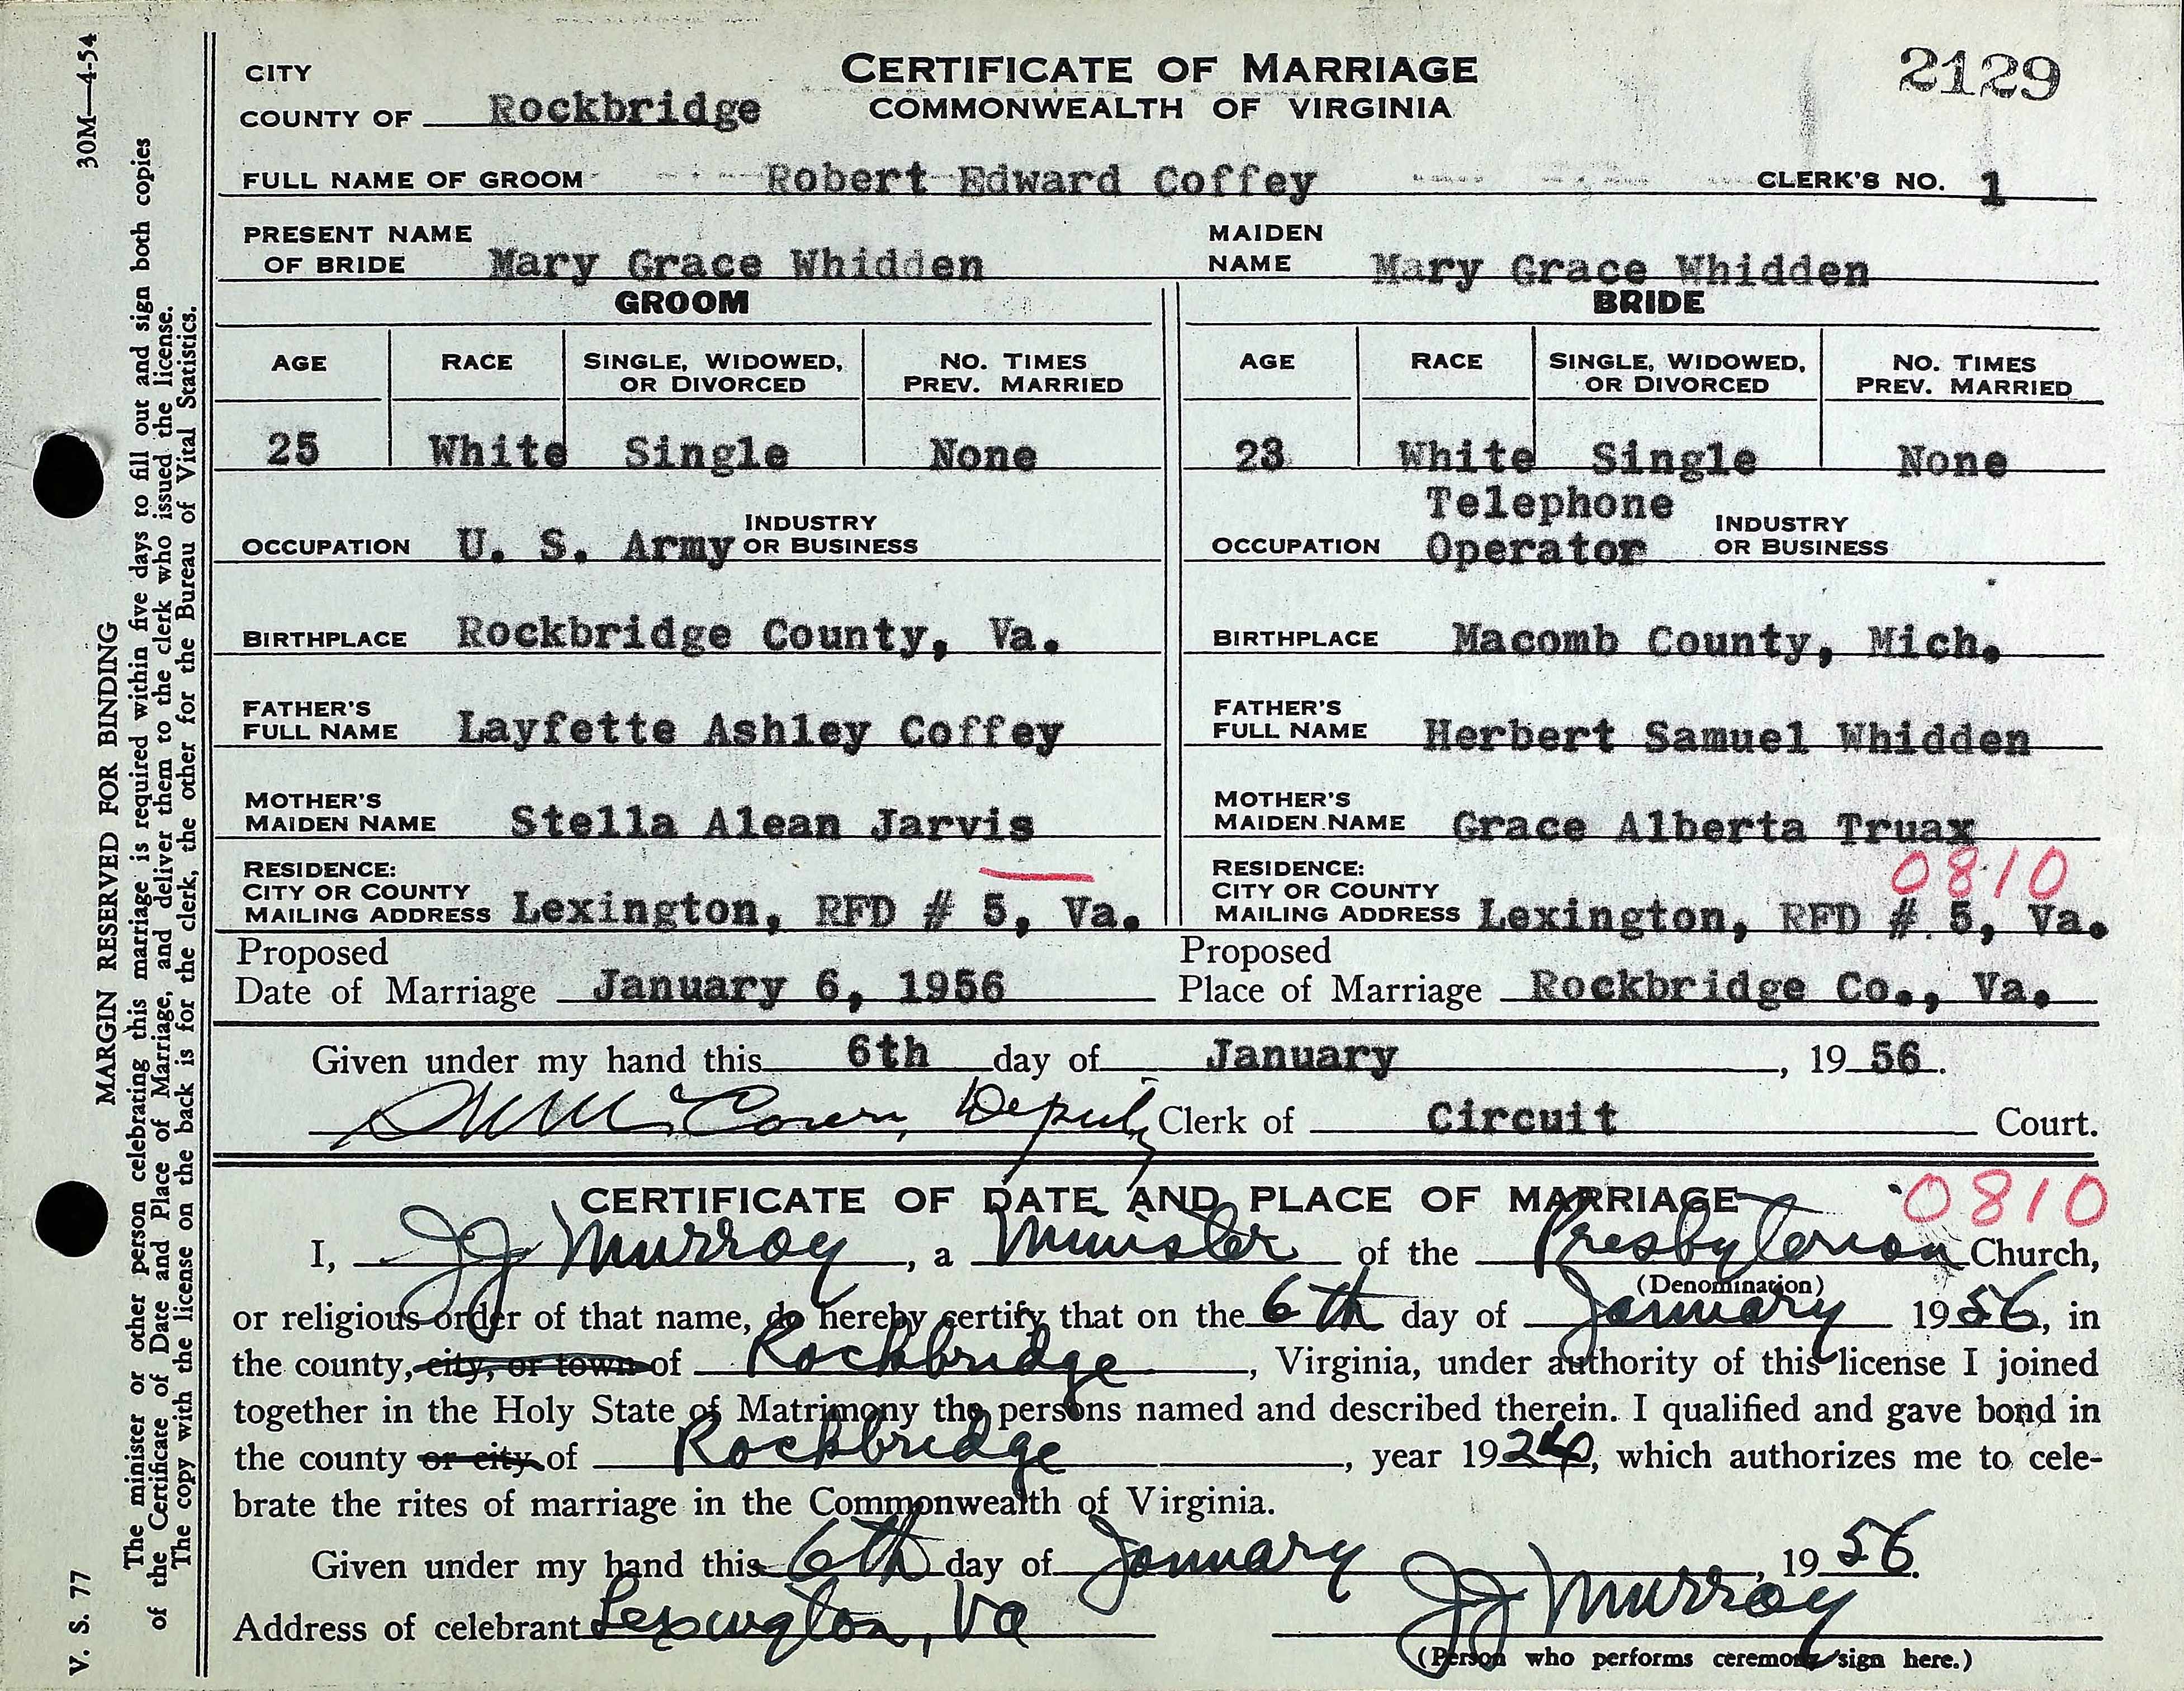 30M—4-54
CITY
CERTIFICATE OF MARRIAGE
2129
COUNTY OF Rockbridge
COMMONWEALTH OF VIRGINIA
FULL NAME OF GROOM Robert Edward Coffey CLERK'S NO. 1
PRESENT NAME OF BRIDE Mary Grace Whidden MAIDEN NAME Mary Grace Whidden
GROOM BRIDE
AGE RACE SINGLE, WIDOWED, OR DIVORCED NO. TIMES PREV. MARRIED AGE RACE SINGLE, WIDOWED, OR DIVORCED NO. TIMES PREV. MARRIED
25 White Single None 23 White Single None
OCCUPATION U. S. Army INDUSTRY OR BUSINESS OCCUPATION Telephone Operator INDUSTRY OR BUSINESS
BIRTHPLACE Rockbridge County, Va. BIRTHPLACE Macomb County, Mich.
FATHER'S FULL NAME Layfette Ashley Coffey FATHER'S FULL NAME Herbert Samuel Whidden
MOTHER'S MAIDEN NAME Stella Alean Jarvis MOTHER'S MAIDEN NAME Grace Alberta Truax
0810
RESIDENCE: CITY OR COUNTY MAILING ADDRESS Lexington, RFD # 5, Va. RESIDENCE: CITY OR COUNTY MAILING ADDRESS Lexington, RFD # 5, Va.
Proposed Date of Marriage January 6, 1956 Proposed Place of Marriage Rockbridge Co., Va.
Given under my hand this 6th day of January, 19 56.
Deputy Clerk of Circuit Court.
CERTIFICATE OF DATE AND PLACE OF MARRIAGE 0810
I, JJ Murray, a Minister of the Presbyterian Church,
(Denomination)
or religious order of that name, do hereby certify that on the 6th day of January 1956, in
the county, city, or town of Rockbridge, Virginia, under authority of this license I joined
together in the Holy State of Matrimony the persons named and described therein. I qualified and gave bond in
the county or city of Rockbridge, year 1924, which authorizes me to cele-
brate the rites of marriage in the Commonwealth of Virginia.
Given under my hand this 6th day of January, 19 56.
Address of celebrant Lexington, Va JJ Murray
(Person who performs ceremony sign here.)
V. S. 77
MARGIN RESERVED FOR BINDING
The minister or other person celebrating this marriage is required within five days to fill out and sign both copies
of the Certificate of Date and Place of Marriage, and deliver them to the clerk who issued the license.
The copy with the license on the back is for the clerk, the other for the Bureau of Vital Statistics.